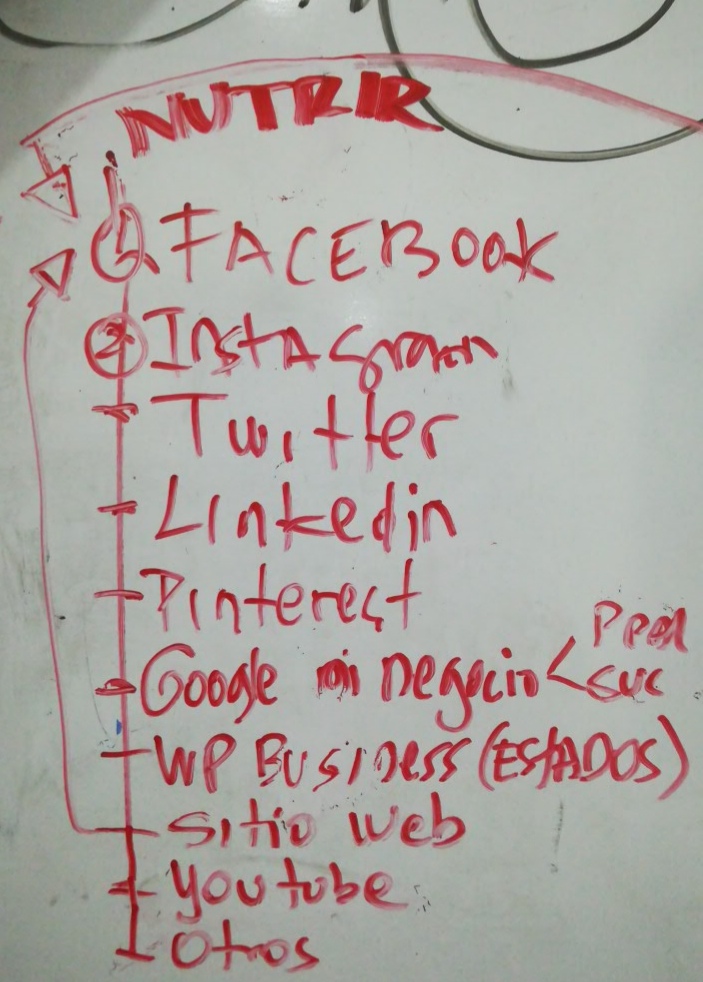 NUTRIR
1 FACEBOOK
2 Instagram
Twitter
Linkedin
Pinterest
Google mi negocio < 
suc
WP Business (ESTADOS)
Sitio web
Youtube
Otros